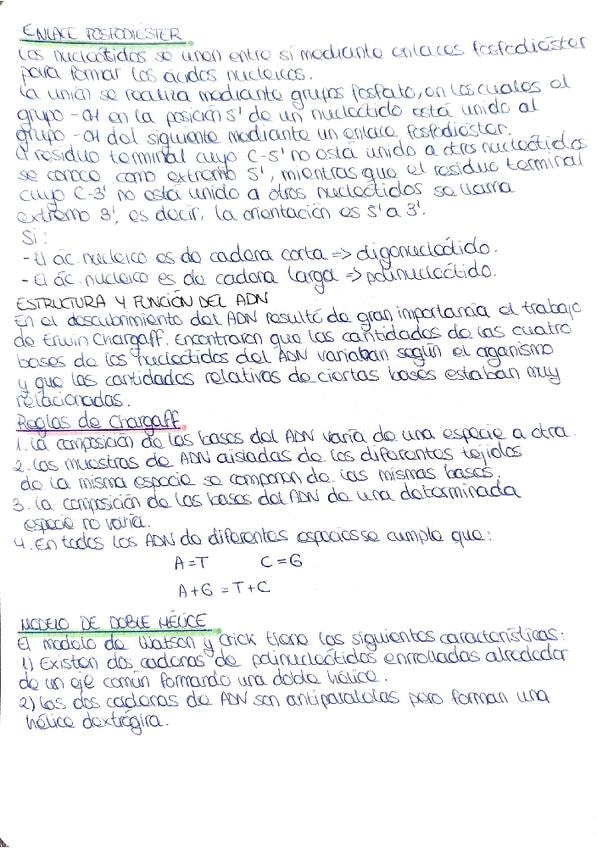 ENLACE FOSFODIÉSTER.
Los nucleótidos se unen entre sí mediante enlaces fosfodiéster
para formar los ácidos nucleicos.
La unión se realiza mediante grupos fosfato, en los cuales el
grupo -OH en la posición 5' de un nucleótido está unido al
grupo -OH del siguiente mediante un enlace fosfodiéster.
El residuo terminal cuyo C-5' no está unido a otros nucleótidos
se conoce como extremo 5', mientras que el residuo terminal
cuyo C-3' no está unido a otros nucleótidos se llama
extremo 3', es decir, la orientación es 5' a 3'.
Si:
- El ác. nucleico es de cadena corta => oligonucleótido.
- El ác. nucleico es de cadena larga => polinucleótido.
ESTRUCTURA Y FUNCIÓN DEL ADN
En el descubrimiento del ADN resultó de gran importancia el trabajo
de Erwin Chargaff. Encontraron que las cantidades de las cuatro
bases de los nucleótidos del ADN variaban según el organismo
y que las cantidades relativas de ciertas bases estaban muy
relacionadas.
Reglas de Chargaff.
1. La composición de las bases del ADN varía de una especie a otra.
2. Las muestras de ADN aisladas de los diferentes tejidos
de la misma especie se componen de las mismas bases.
3. La composición de las bases del ADN de una determinada
especie no varía.
4. En todos los ADN de diferentes especies se cumple que:
A=T C=G
A+G = T+C
MODELO DE DOBLE HÉLICE
El modelo de Watson y Crick tiene las siguientes características:
1) Existen dos cadenas de polinucleótidos enrolladas alrededor
de un eje común formando una doble hélice.
2) Las dos cadenas de ADN son antiparalelas pero forman una
hélice dextrógira.